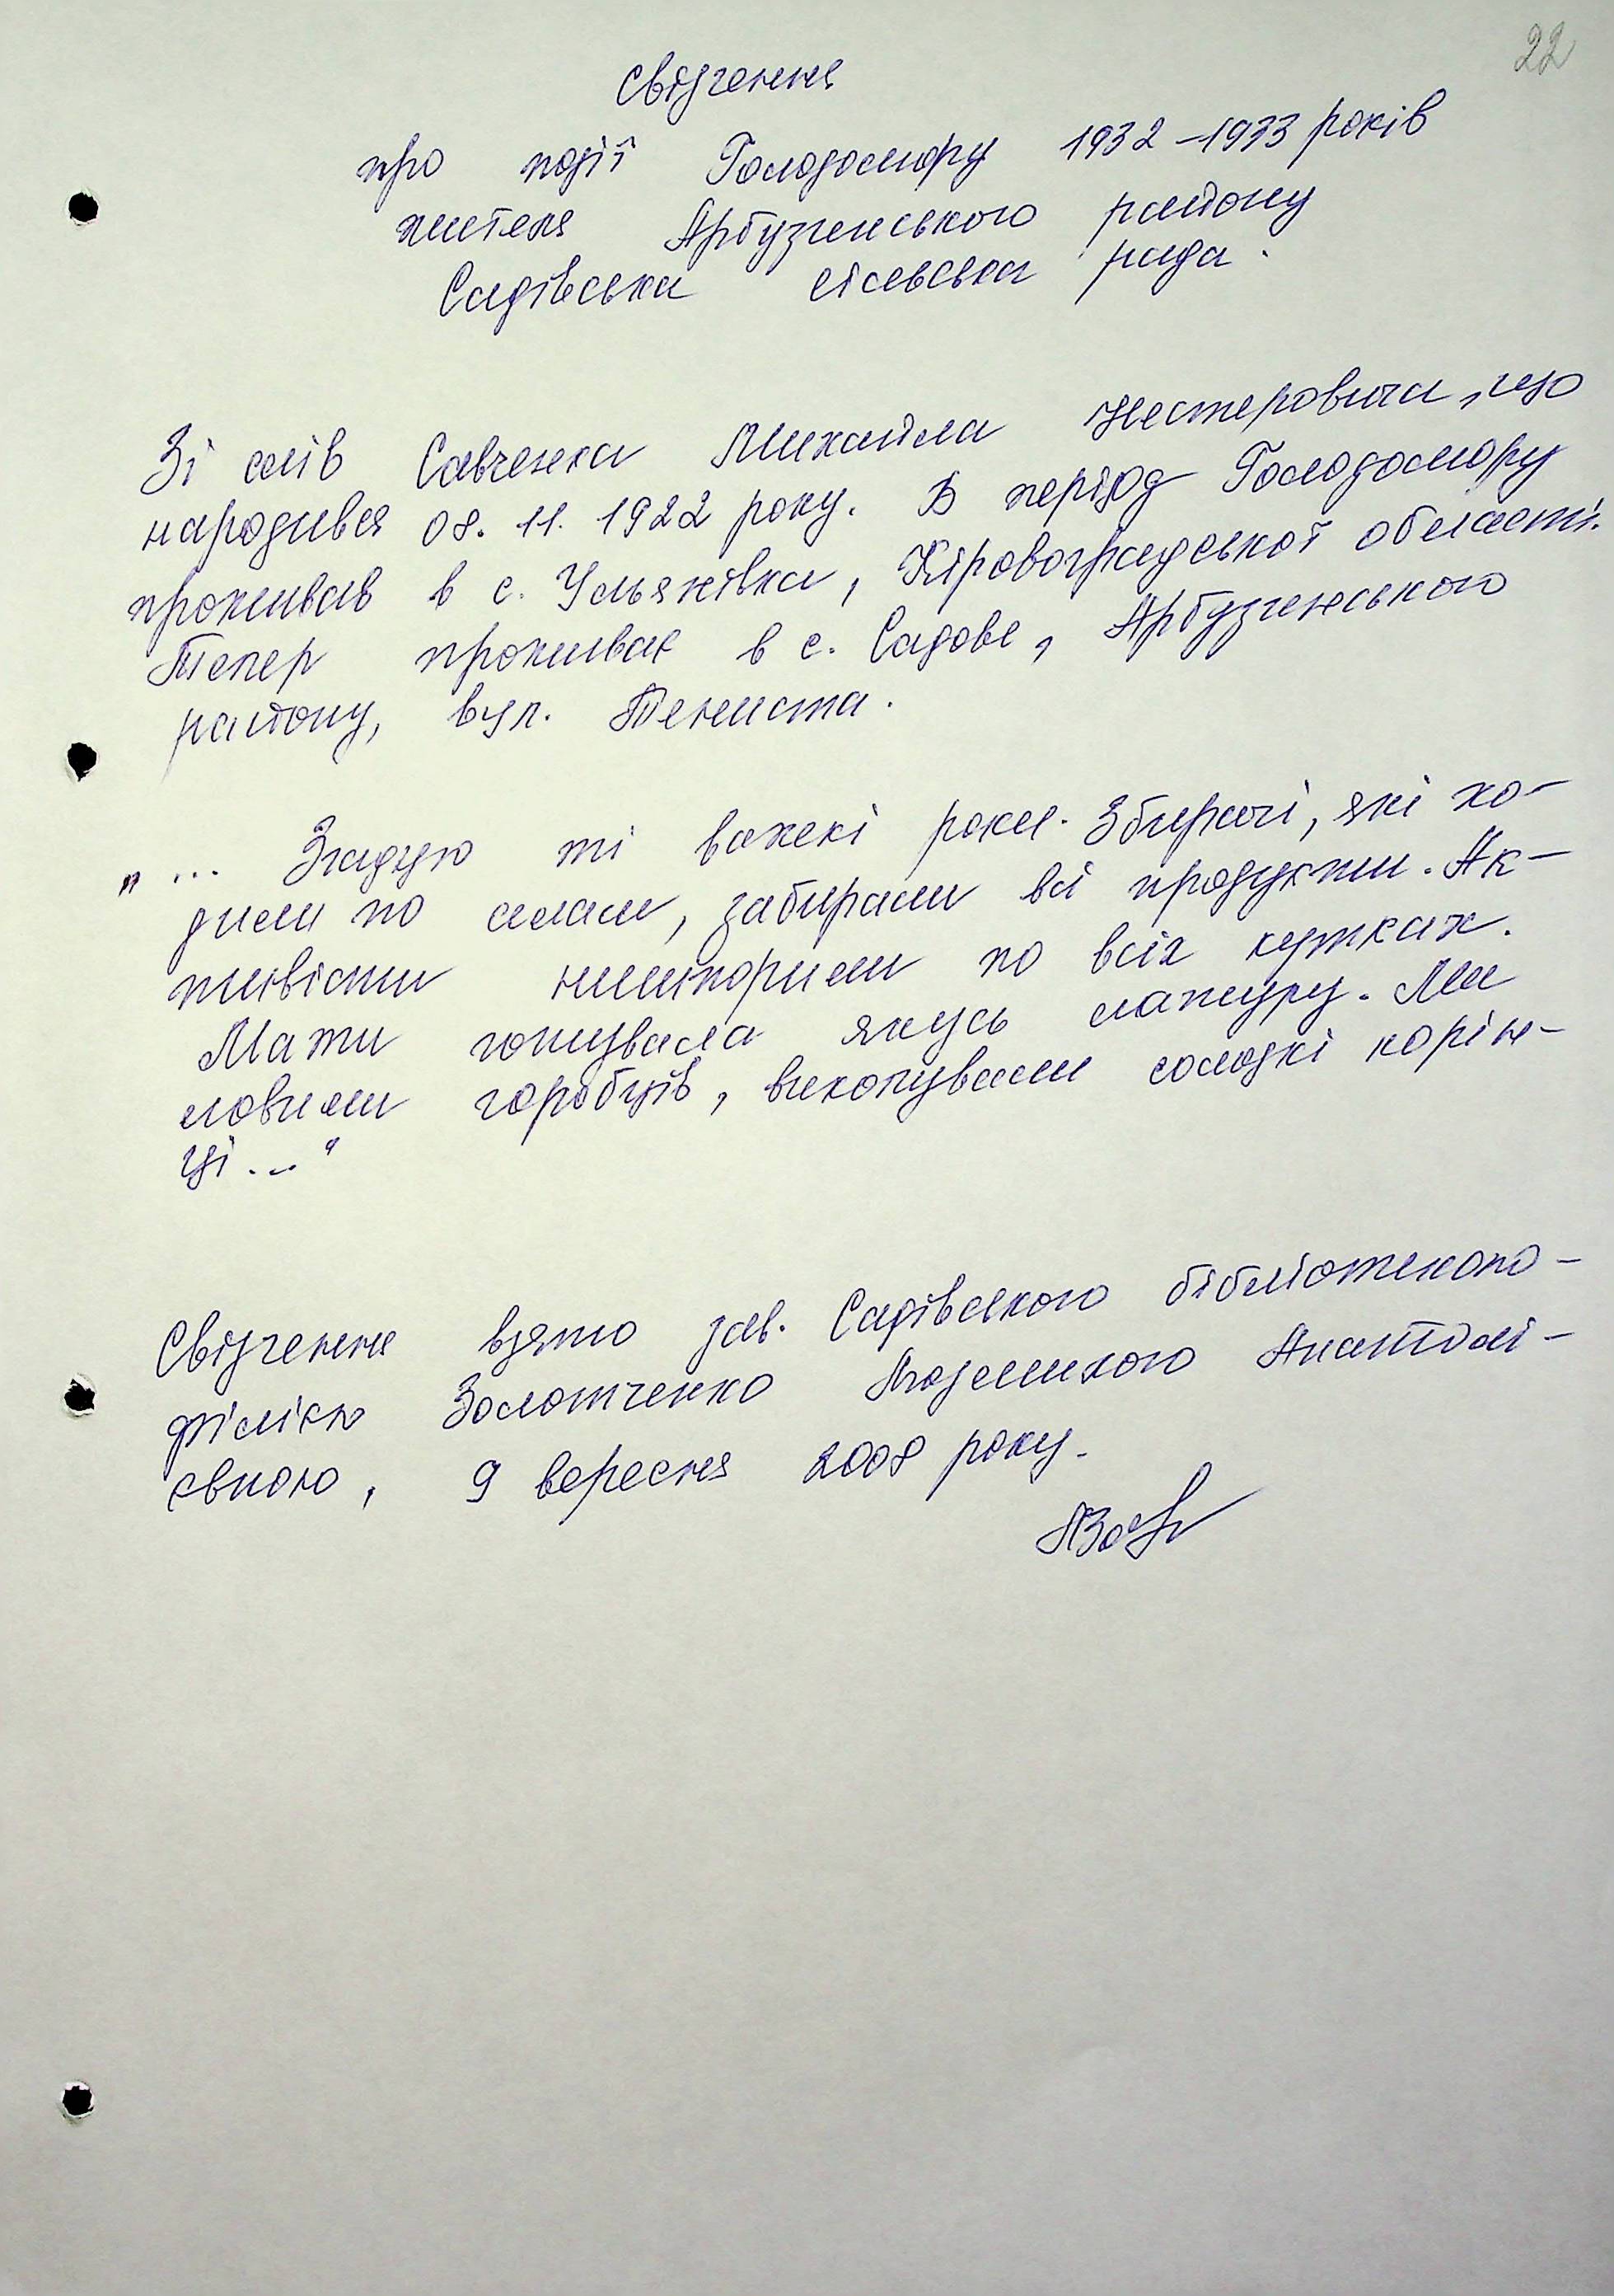 22
Свідчення
про події Голодомору 1932-1933 років
жителя Арбузинського району
Садівська сільська рада.
Зі слів Савченка Михайла Нестеровича, що
народився 08. 11. 1922 року. В період Голодомору
проживав в с. Ульянівка, Кіровоградської області.
Тепер проживає в с. Садове, Арбузинського
району, вул. Тениста.
"... Згадую ті важкі роки. Збирачі, які хо-
дили по селам, забирали всі продукти. Ак-
тивісти нишпорили по всіх кутках.
Мати готувала якусь мамуру. Ми
ловили горобців, викопували солодкі корін-
ці..."
Свідчення взято зав. Садівською бібліотекою-
філією Золотченко Людмилою Анатолі-
ївною, 9 вересня 2008 року.